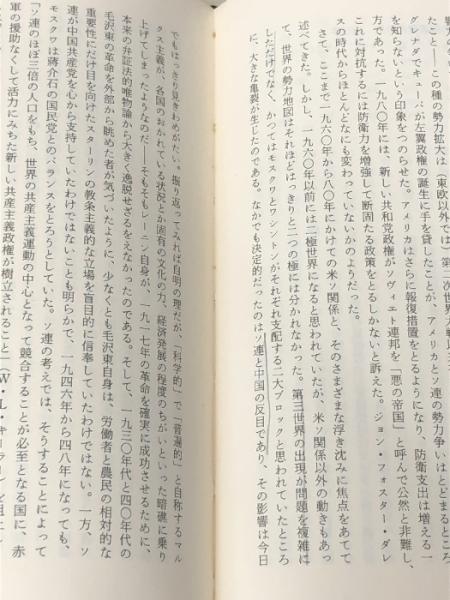 たこと――この種の勢力拡大は（東欧以外では）第二次世界
グレナダでキューバが左翼政権の誕生に手を貸したことが、アメリカとソ連の勢力争いはとどまるところ
を知らないという印象をつのらせた。アメリカはさらに報復措置をとるようになり、防衛支出は増える一
方であった。一九八〇年には、新しい共和党政権がソヴィエト連邦を「悪の帝国」と呼んで公然と非難し、
これに対抗するには防衛力を増強して断固たる政策をとるしかないと訴えた。ジョン・フォスター・ダレ
スの時代からほとんどなにも変わっていないかのようだった。
さて、ここまで一九六〇年から八〇年にかけての米ソ関係と、そのさまざまな浮き沈みに焦点をあてて
述べてきた。しかし、一九六〇年以前には二極世界になると思われていたが、米ソ関係以外の動きもあっ
て、世界の勢力地図はそれほどはっきりと二つの極には分かれなかった。第三世界の出現が問題を複雑に
しただけでなく、かつてはモスクワとワシントンがそれぞれ支配する二大ブロックと思われていたところ
に、大きな亀裂が生じたのである。なかでも決定的だったのはソ連と中国の反目であり、その影響は今日
でもはっきり見きわめがたい。振り返ってみれば自明の理だが、「科学的」で「普遍的」と自称するマル
クス主義が、各国のおかれている状況とか固有の文化の力、経済発展の程度のちがいといった暗礁に乗り
上げてしまったようなのだ――そもそもレーニン自身が、一九一七年の革命を確実に成功させるために、
本来の弁証法的唯物論から大きく逸脱せざるをえなかったのである。そして、一九三〇年代と四〇年代の
毛沢東の革命を外部から眺めた者が気づいたように、少なくとも毛沢東自身は、労働者と農民の相対的な
重要性にだけ目を向けたスターリンの教条主義的な立場を盲目的に信奉していたわけではない。一方、ソ
連が中国共産党を心から支持していたわけではないことも明らかで、一九四六年から四八年になっても、
モスクワは蔣介石の国民党とのバランスをとろうとしていた。ソ連の考えでは、そうすることによって
「ソ連のほぼ三倍の人口をもち、世界の共産主義運動の中心となって競合することが必至となる国に、赤
軍の援助なくして活力にみちた新しい共産主義政権が樹立されること」（W・L・キーラー）を阻止し